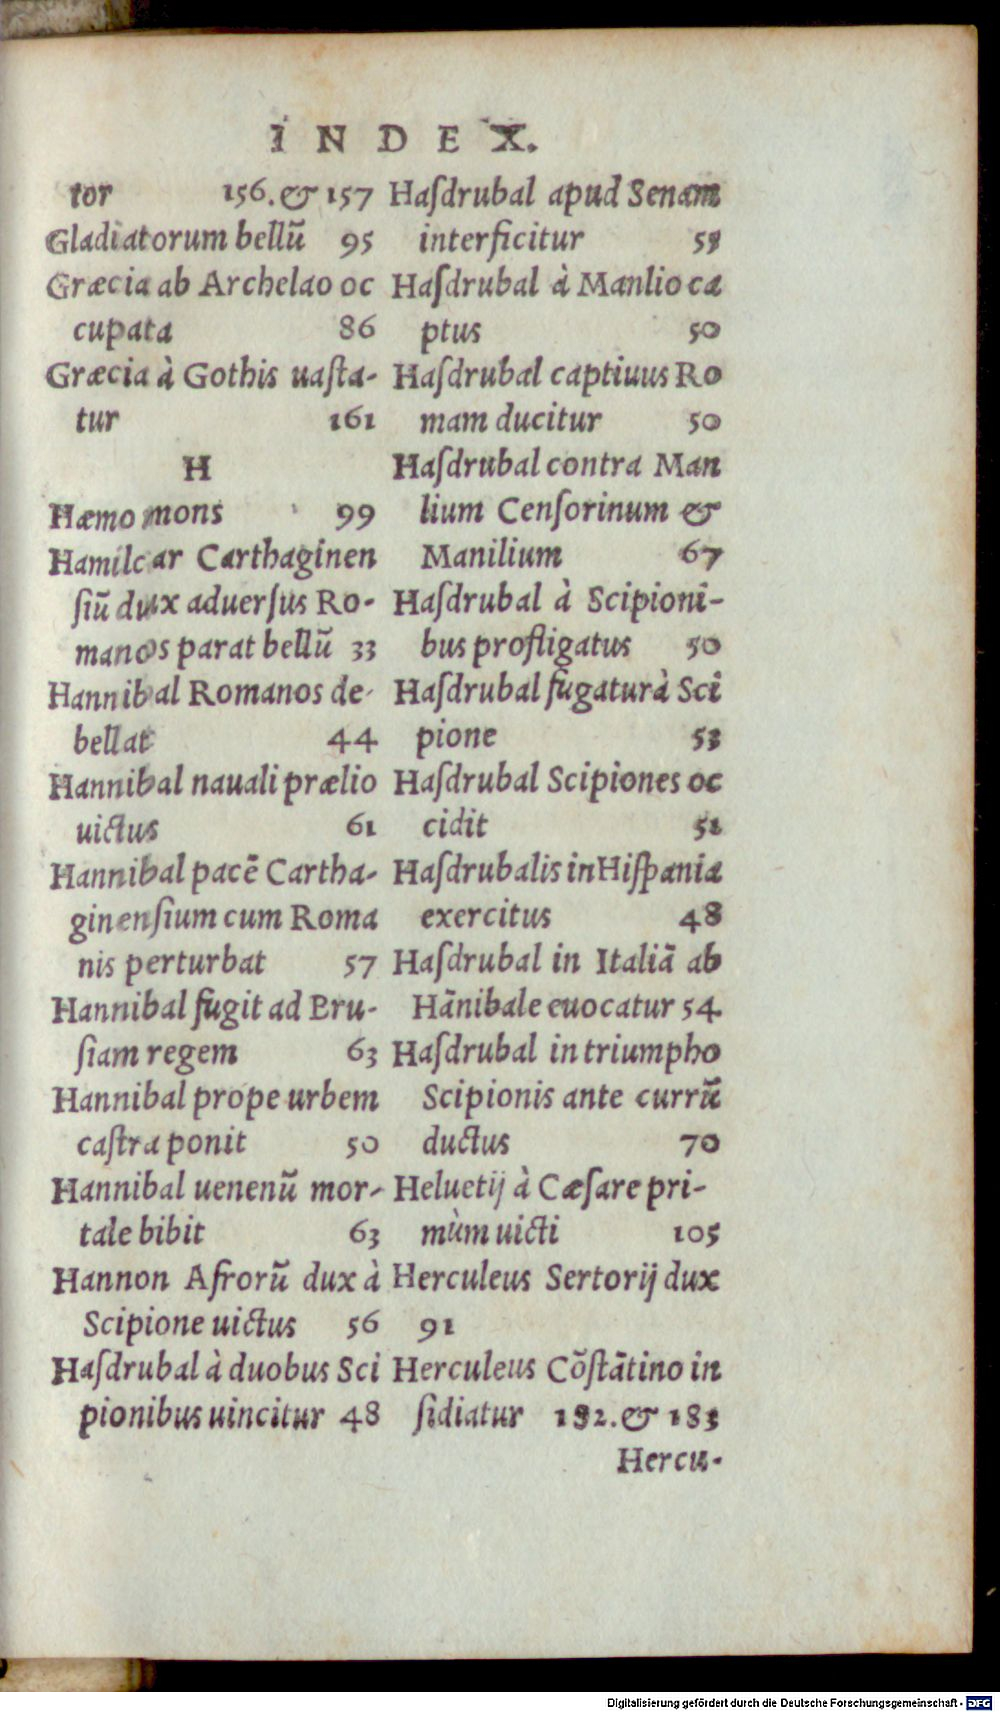 INDEX.
tor 156. & 157
Gladiatorum bellū 95
Græcia ab Archelao oc
cupata 86
Græcia à Gothis uaſta-
tur 161
H
Hæmo mons 99
Hamilcar Carthaginen
ſiū dux aduerſus Ro-
manos parat bellū 33
Hannibal Romanos de-
bellat 44
Hannibal nauali prælio
uictus 61
Hannibal pacē Cartha-
ginenſium cum Roma
nis perturbat 57
Hannibal fugit ad Bru-
ſiam regem 63
Hannibal prope urbem
caſtra ponit 50
Hannibal uenenū mor-
tale bibit 63
Hannon Afrorū dux à
Scipione uictus 56
Haſdrubal à duobus Sci
pionibus uincitur 48
Haſdrubal apud Senam
interficitur
Haſdrubal à Manlio ca
ptus 50
Haſdrubal captiuus Ro
mam ducitur 50
Haſdrubal contra Man
lium Cenſorinum &
Manilium 67
Haſdrubal à Scipioni-
bus profligatus 50
Haſdrubal fugatur à Sci
pione 53
Haſdrubal Scipiones oc
cidit 51
Haſdrubalis in Hiſpania
exercitus 48
Haſdrubal in Italiā ab
Hānibale euocatur 54
Haſdrubal in triumpho
Scipionis ante currū
ductus 70
Heluetij à Cæſare pri-
mùm uicti 105
Herculeus Sertorij dux
91
Herculeus Cōſtātino in
ſidiatur 182. & 183
Hercu-
Digitalisierung gefördert durch die Deutsche Forschungsgemeinschaft - DFG